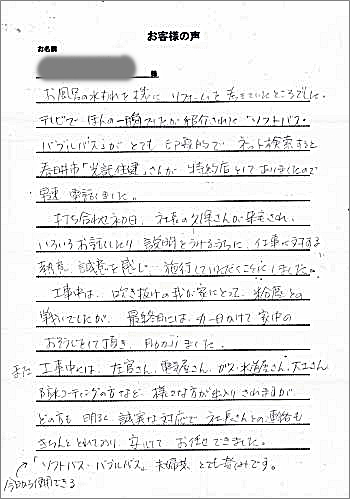 お客様の声
お名前
様
お風呂の水もれを機に リフォームを考えていたところでした。
テレビで ほんの一瞬でしたが紹介された「ソフトバス・
バブルバス」が とても 印象的で ネット検索すると
春日井市「光託住建」さんが 特約店としてありましたので
早速 電話しました。
打ち合わせ初日、社長の久保さんが来宅され、
いろいろお話ししたり 説明をうけるうちに、仕事に対する
熱意、誠意を感じ、施行していただくことにしました。
工事中は、吹き抜けの我が家にとって、粉塵との
戦いでしたが、最終日には、力一日かけて 家中の
おそうじをして頂き、助かりました。
また 工事中は、左官さん、電気屋さん、ガス・水道屋さん、大工さん
防水コーティングの方など、様々な方が出入りされますが
どの方も 明るく 誠実な対応で 社長さんとの連絡も
きちんと とれており、安心して お任せできました。
「ソフトバス・バブルバス」、夫婦共 とても 幸せです。
今日から使用できる